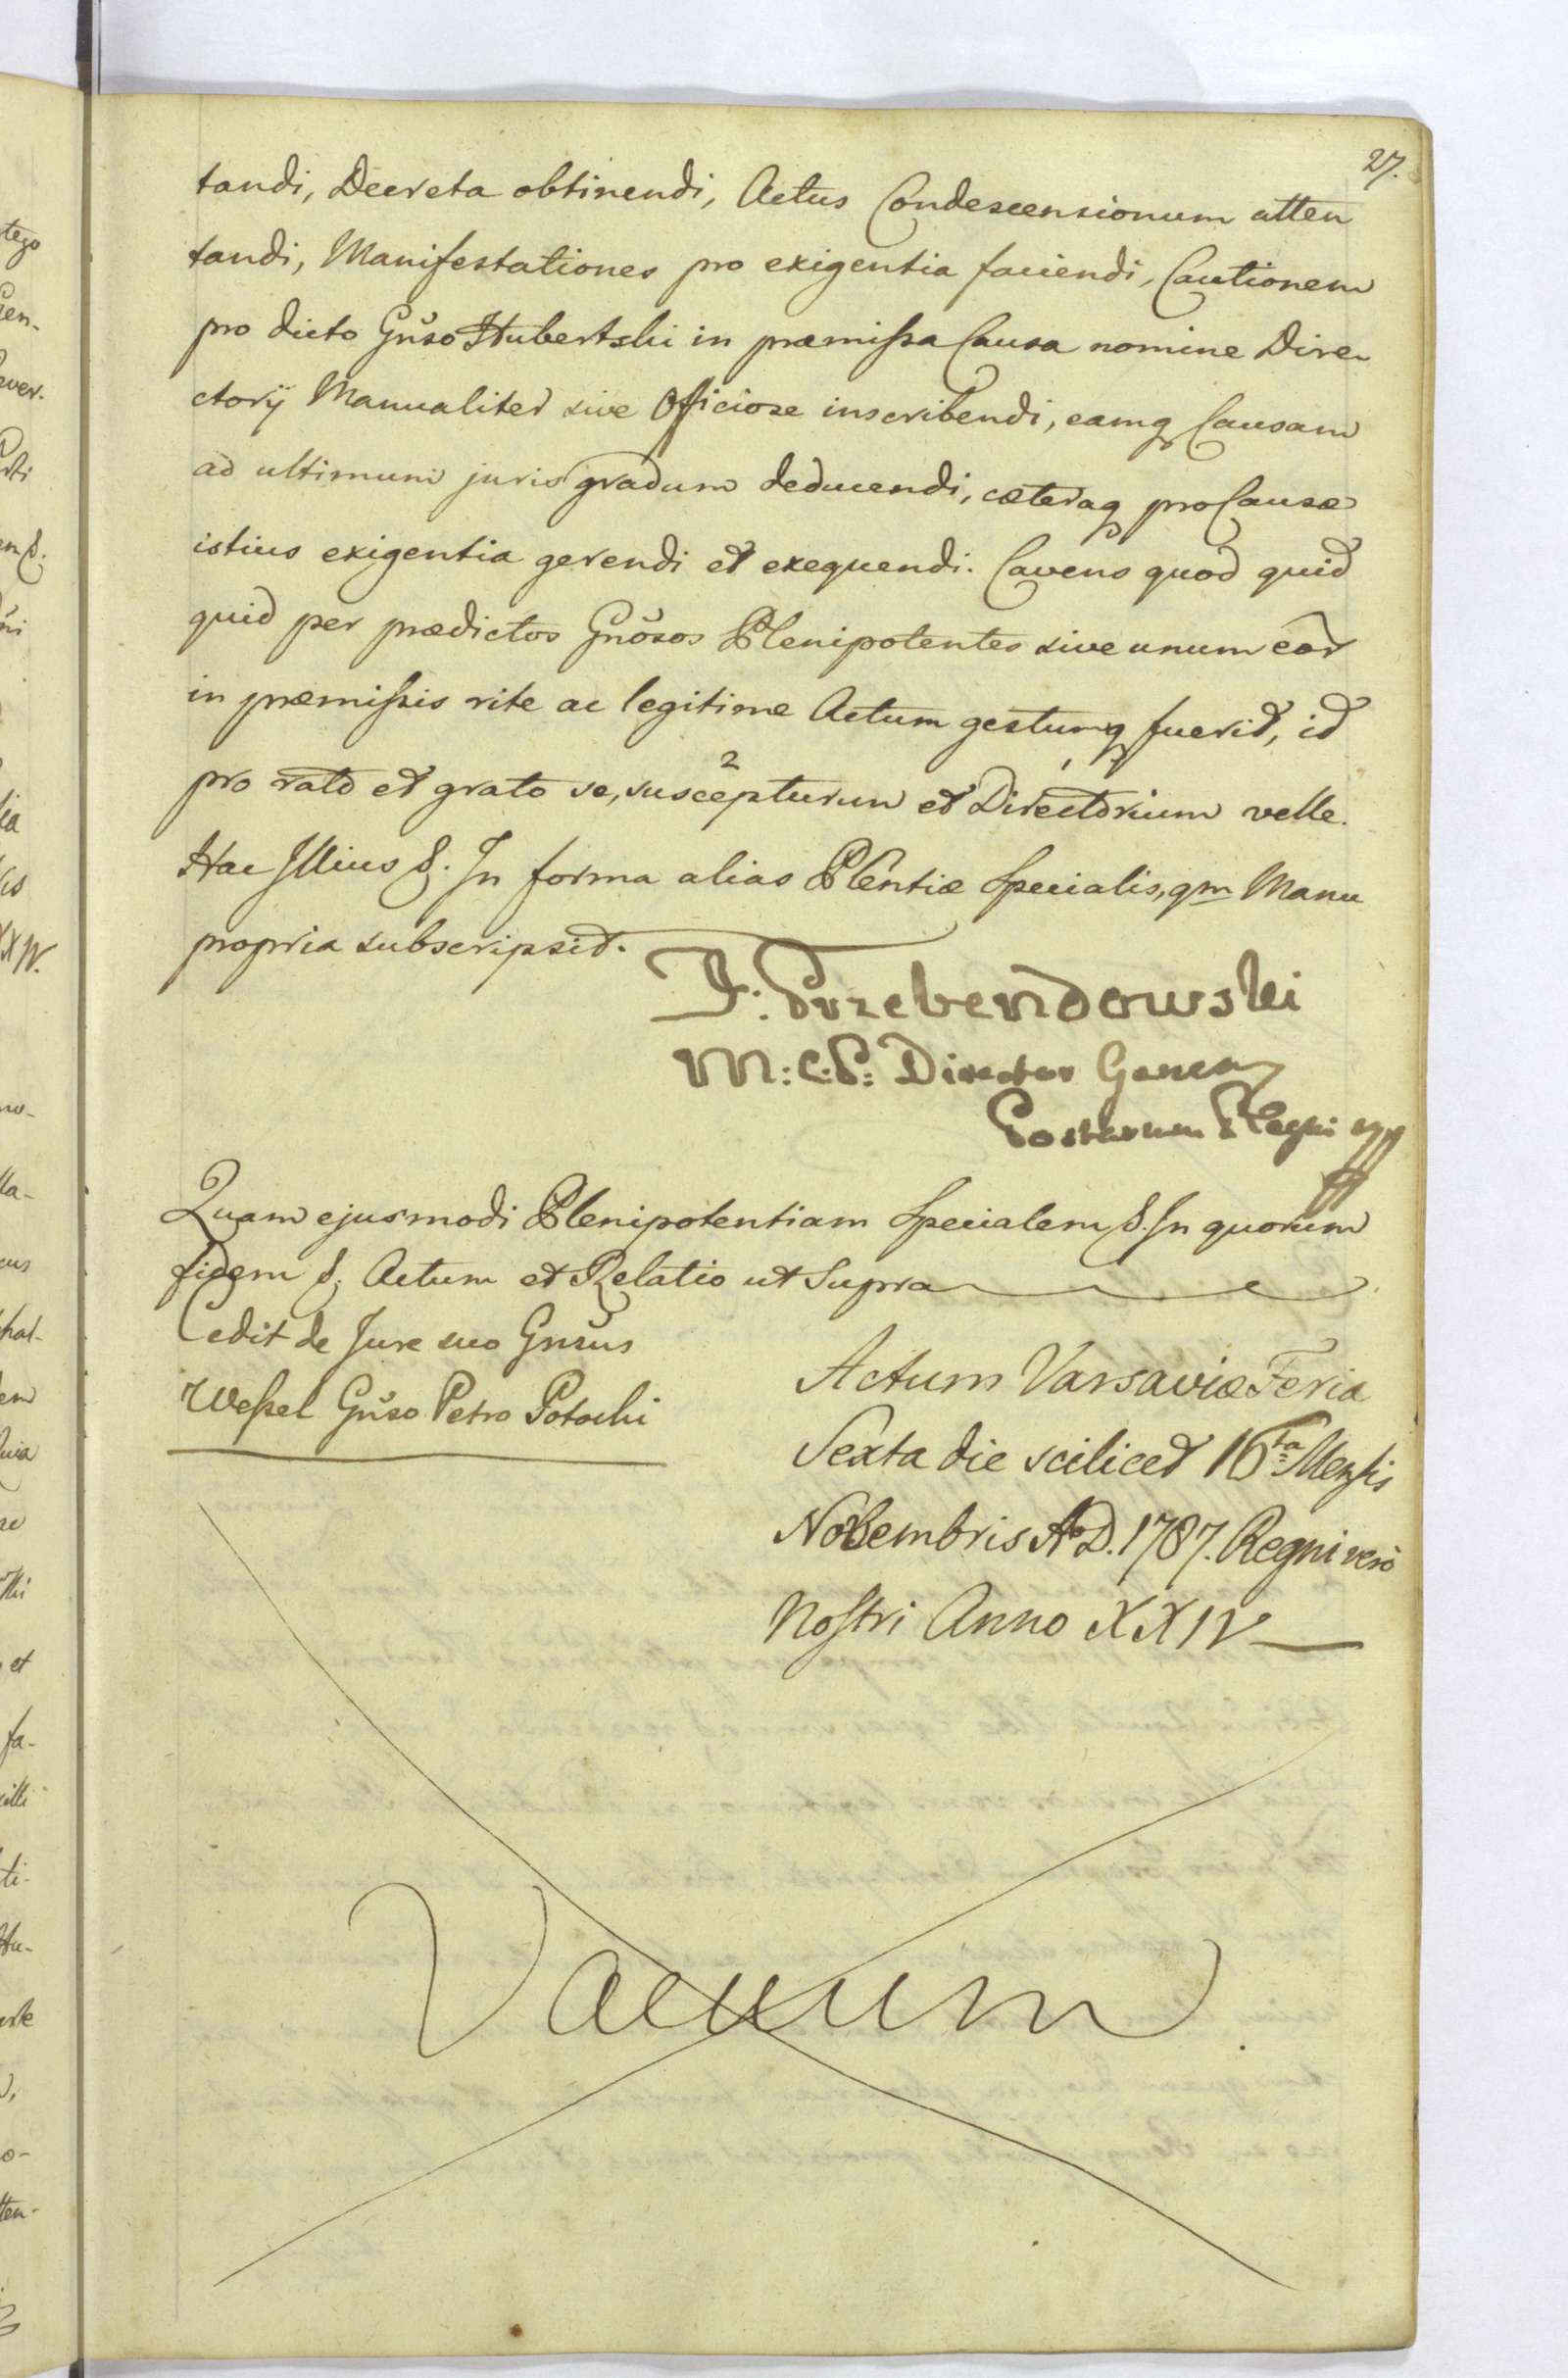 27.
tandi, Decreta obtinendi, Actus Condescensionum atten
tandi, Manifestationes pro exigentia faciendi, Cautionem
pro dicto Gn̄so Hubertski in præmissa Causa nomine Dire
ctorij Manualiter sive Officiose inscribendi, eamq Causam
ad ultimum juris gradum deducendi, cæteraq pro Causæ
istius exigentia gerendi et exequendi. Cavens quod quid
quid per prædictos Gnōsos Plenipotentes sive unum eor̄
in præmissis rite ac legitime Actum gestumq fuerit, id
pro rato et grato se, suscepturum 2 et Directorium 1 velle.
Hac Illius &. In forma alias Plēntiæ Specialis, qm Manu
propria subscripsit.
J: Przebendowski
M: C: P: Director Gener
Postarum Regni mpp
Quam ejusmodi Plenipotentiam Specialem &. In quorum
fidem &. Actum et Relatio ut Supra
Cedit de Jure suo Gnsus
Wessel Gn̄so Petro Potocki
Actum Varsaviæ Feria
Sexta die scilicet 16ta Mensis
Novembris A.D. 1787. Regni verò
Nostri Anno XXIV
Vacuum